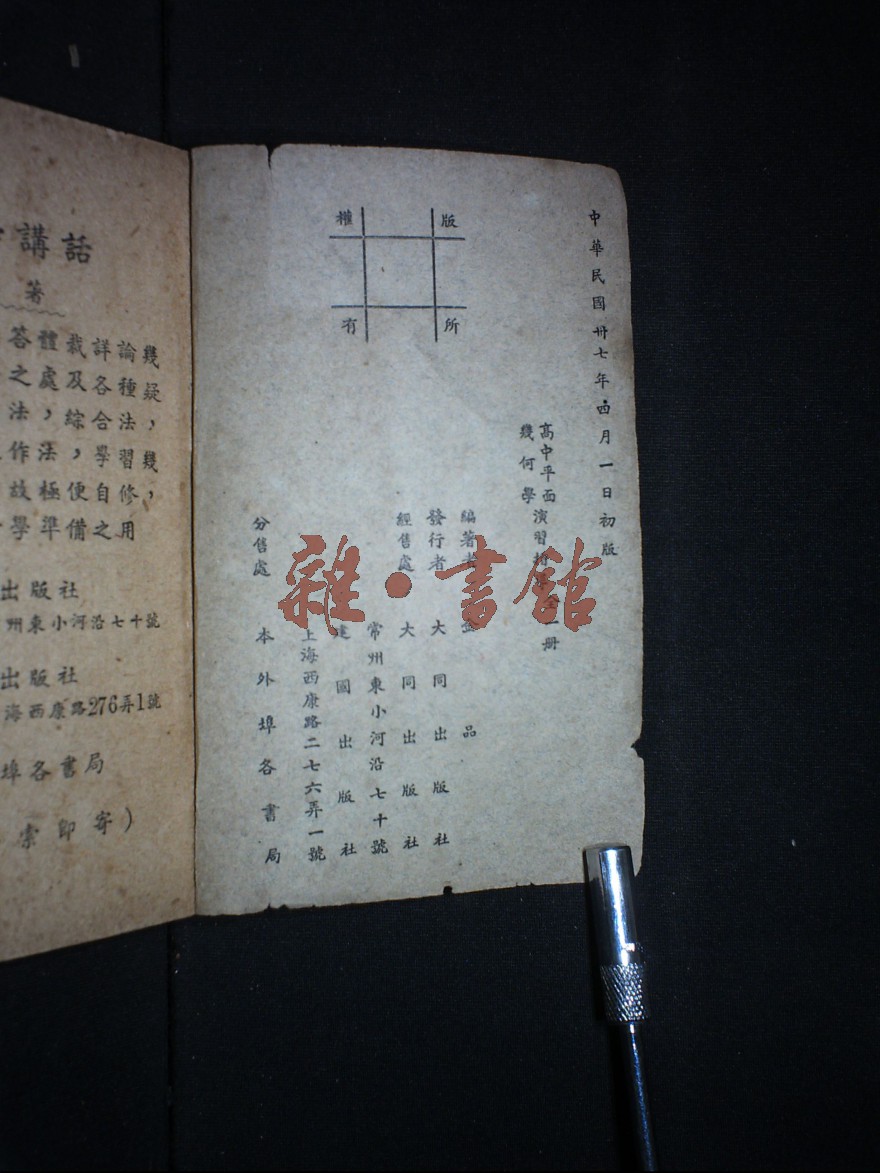 中華民國卅七年四月一日初版
高中平面
幾何學
演習指 全一册
編著者 金品
發行者 大同出版社
經售處 大同出版社
常州東小河沿七十號
建國出版社
上海西康路二七六弄一號
分售處 本外埠各書局
版權所有
雜·書館
講話
著
答體裁詳論幾
之處及各種疑
法,綜合法,
作法,學習幾
故極便自修,
學準備之用
出版社
州東小河沿七十號
出版社
海西康路276弄1號
埠各書局
索即寄)